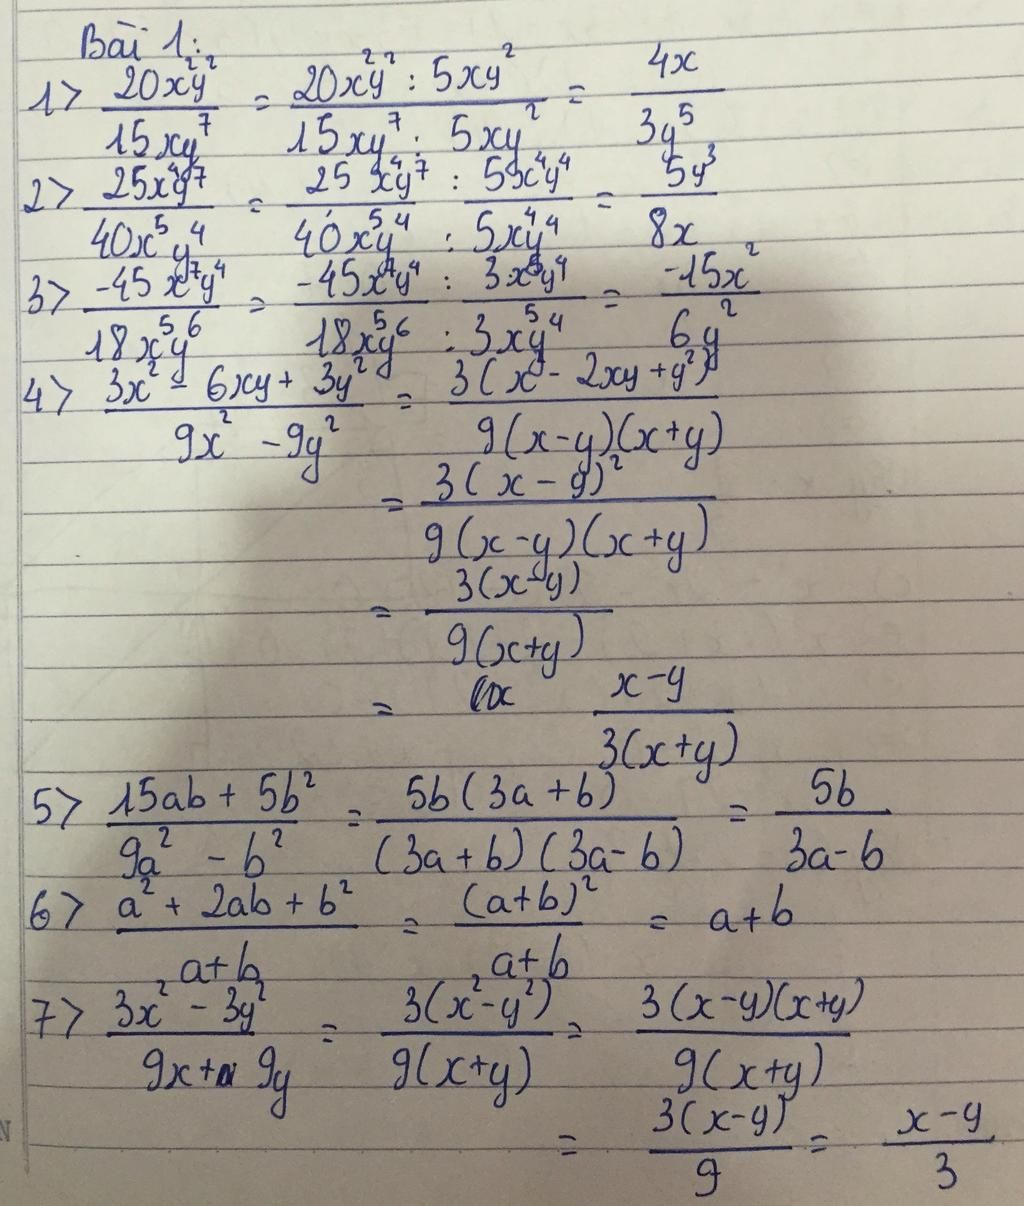 Bài 1:
1> 20x²y² / 15xy⁷ = 20x²y² : 5xy² / 15xy⁷ : 5xy² = 4x / 3y⁵
2> 25x⁴y⁷ / 40x⁵y⁴ = 25x⁴y⁷ : 5x⁴y⁴ / 40x⁵y⁴ : 5x⁴y⁴ = 5y³ / 8x
3> -45x⁷y⁴ / 18x⁵y⁶ = -45x⁷y⁴ : 3x⁵y⁴ / 18x⁵y⁶ : 3x⁵y⁴ = -15x² / 6y²
4> 3x² - 6xy + 3y² / 9x² - 9y² = 3(x² - 2xy + y²) / 9(x-y)(x+y)
= 3(x - y)² / 9(x-y)(x+y)
= 3(x-y) / 9(x+y)
= x-y / 3(x+y)
5> 15ab + 5b² / 9a² - b² = 5b(3a+b) / (3a+b)(3a-b) = 5b / 3a-b
6> a² + 2ab + b² / a+b = (a+b)² / a+b = a+b
7> 3x² - 3y² / 9x + 9y = 3(x²-y²) / 9(x+y) = 3(x-y)(x+y) / 9(x+y)
= 3(x-y) / 9 = x-y / 3